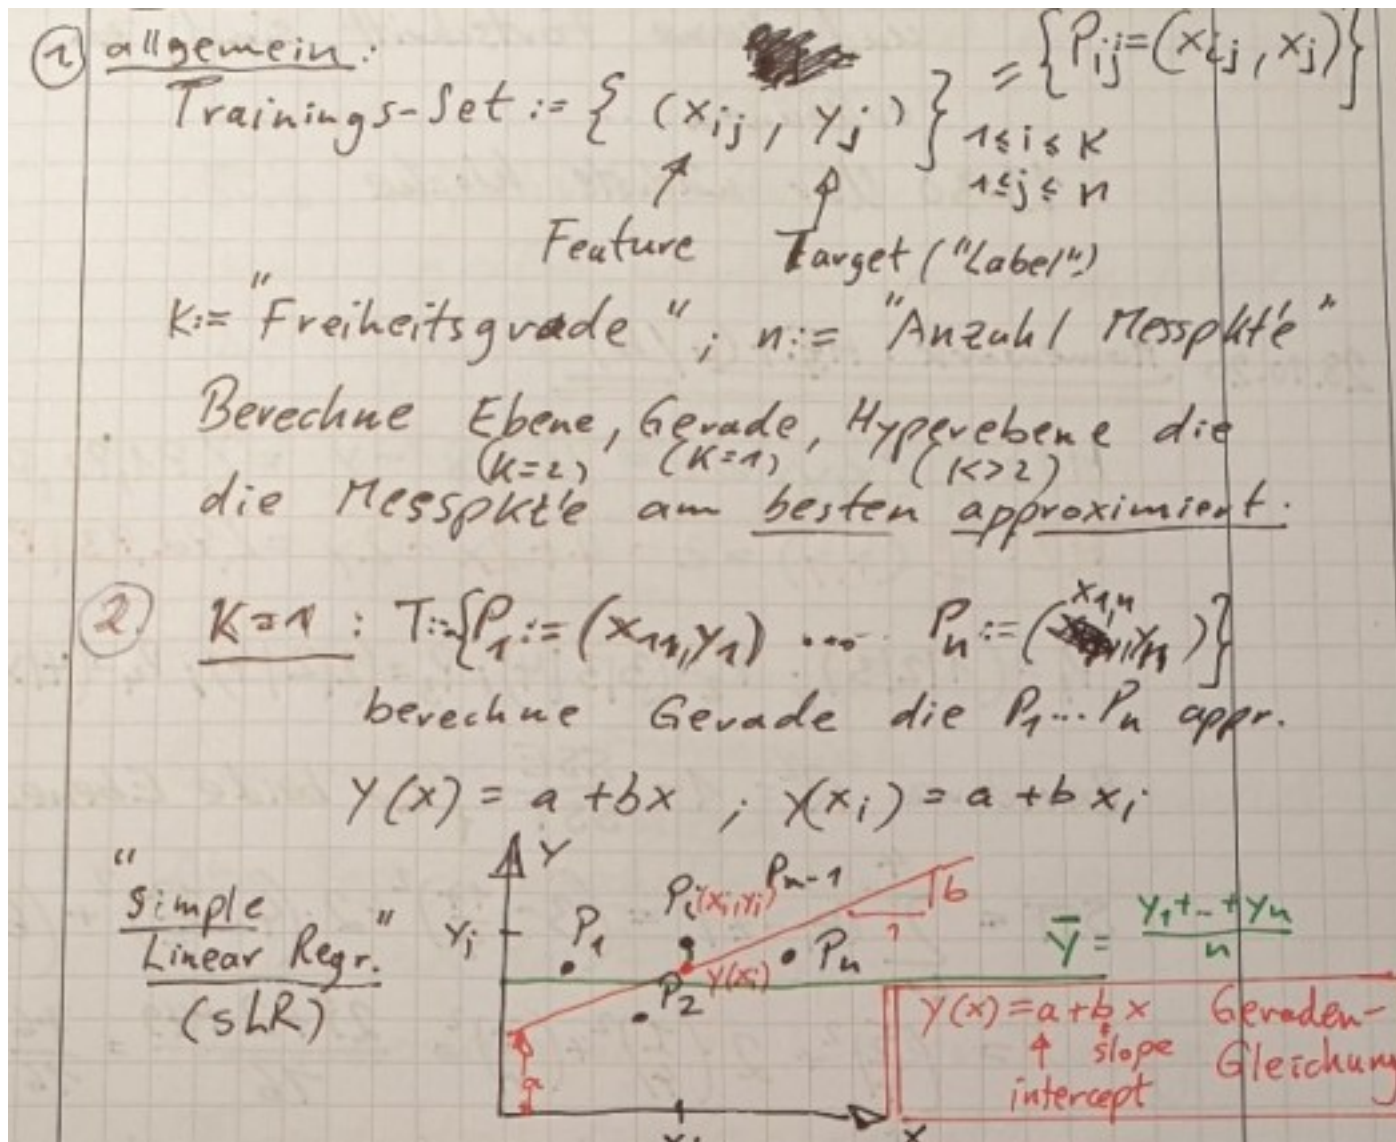 ① allgemein:
= {P_ij=(x_ij, x_j)}
Trainings-Set := { (x_ij, y_j) } 1≤i≤K
1≤j≤n
Feature Target ("Label")
K:= "Freiheitsgrade"; n:= "Anzahl Messpkt'e"
Berechne Ebene, Gerade, Hyperebene die
(K=2) (K=1) (K>2)
die Messpkt'e am besten approximiert.
② K=1 : T:={P_1:=(x_11,y_1) .... P_n:=(x_1,n, y_n)}
berechne Gerade die P_1...P_n appr.
Y(x) = a +bx ; Y(x_i) = a +b x_i
"Simple
Linear Regr."
(sLR)
Y
P_i (x_i,y_i) P_n-1
b
y_i
P_1
1
P_n
Y(x_i)
P_2
a
x
ȳ = y_1+...+y_n / n
Y(x) = a+b x Geraden-
slope Gleichung
intercept